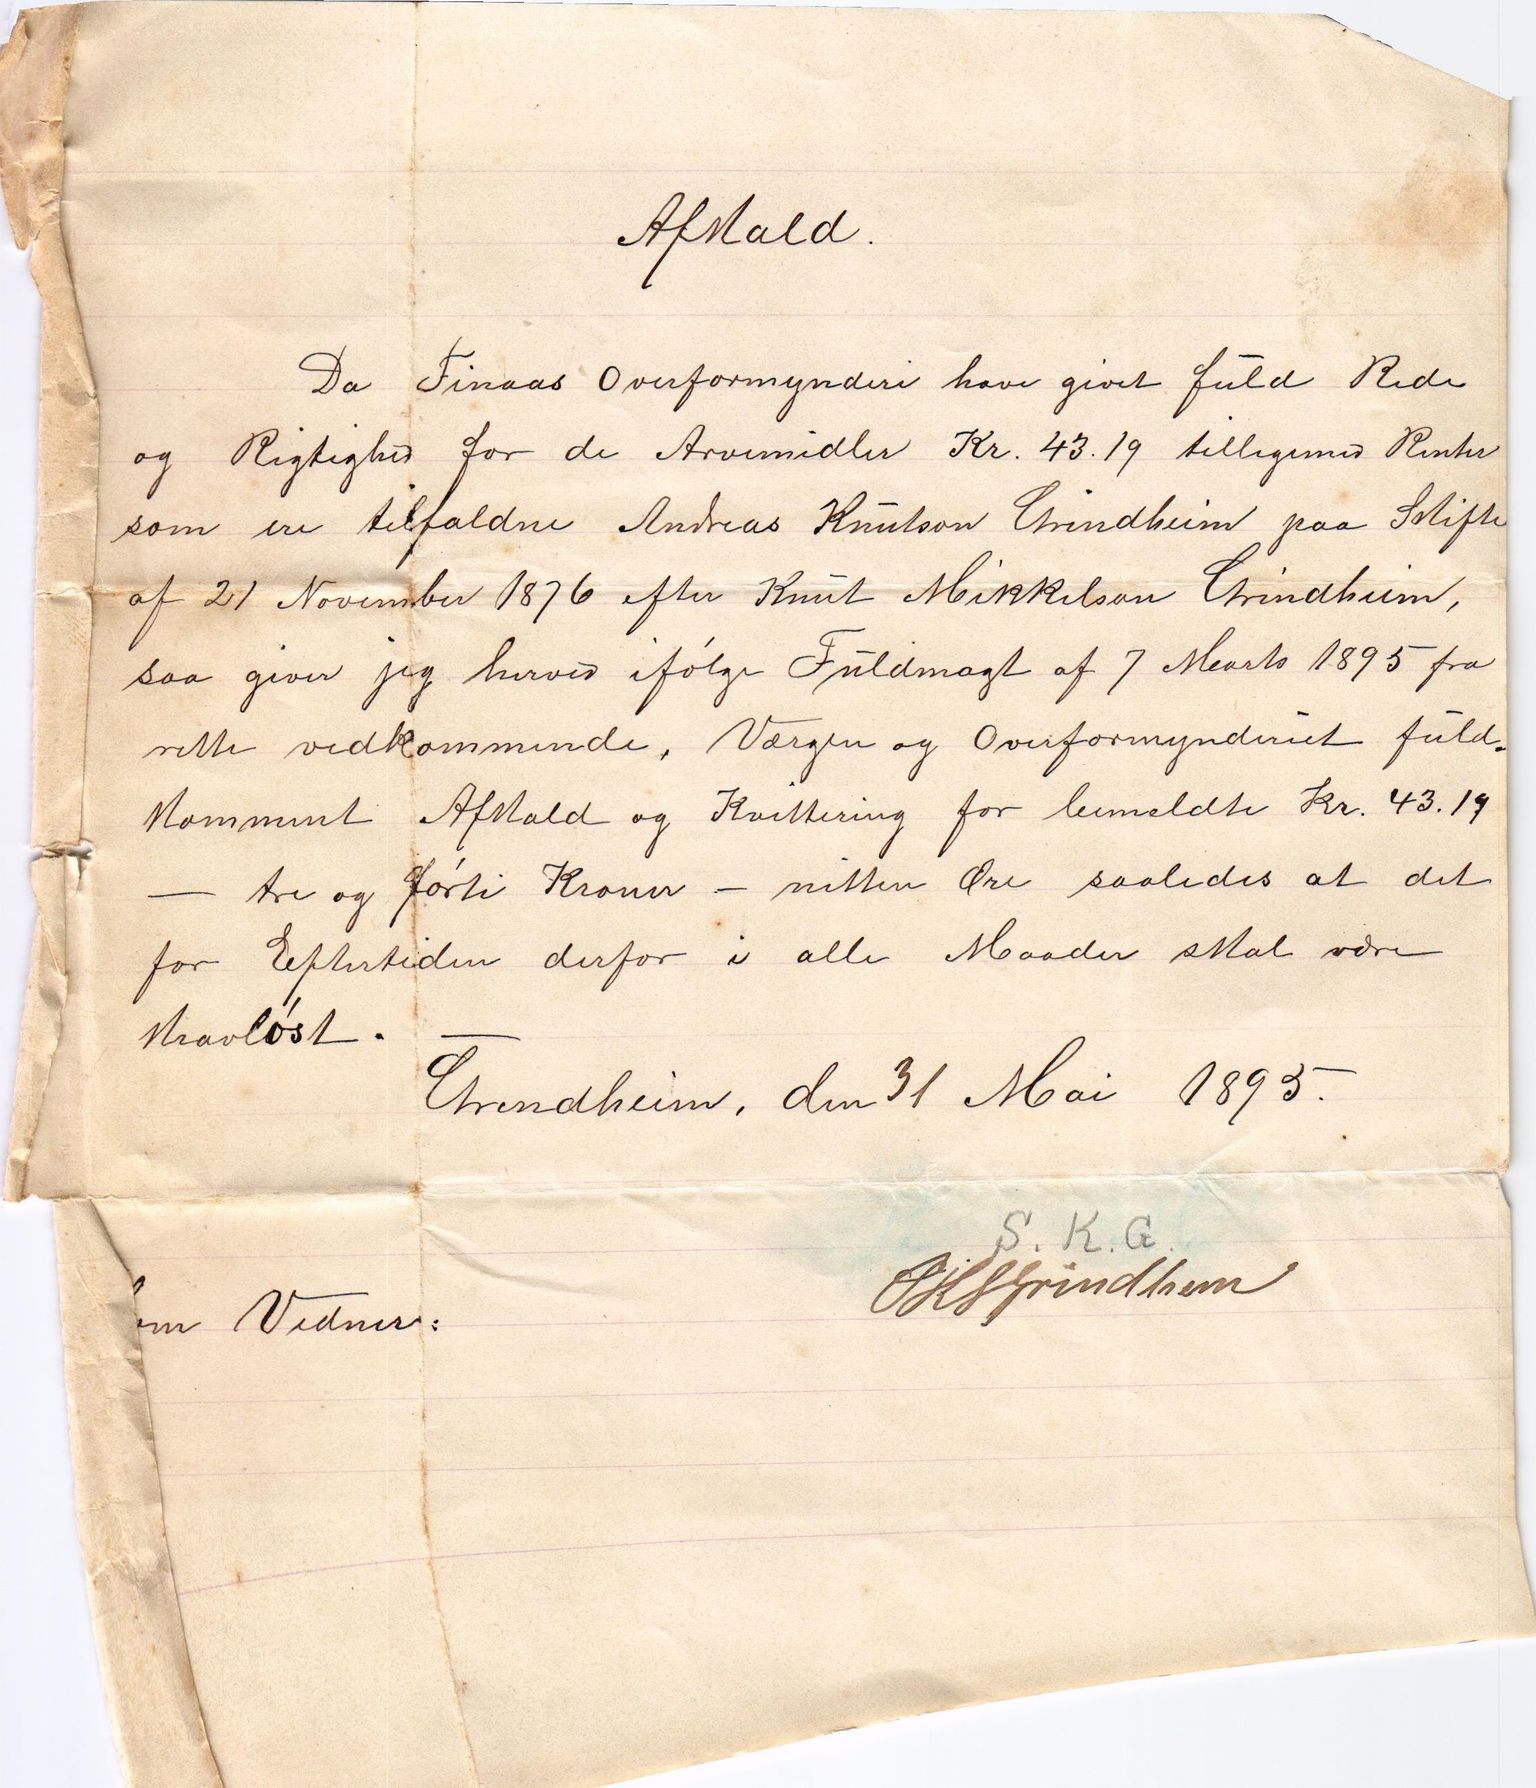 Afkald.
Da Finaas Overformynderi have givet fuld Rede
og Rigtighed for de Arvemidler Kr. 43.19 tilligemed Renter
som ere tilfaldne Andreas Knutson Grindheim paa Skifte
af 21 November 1876 efter Knut Mikkelson Grindheim,
saa giver jeg herved ifølge Fuldmagt af 7 Marts 1895 fra
rette vedkommende, Værgen og Overformynderiet fuld-
komment Afkald og Kvittering for bemeldte Kr. 43.19
— tre og førti Kroner – nitten Øre saaledes at det
for Eftertiden derfor i alle Maader skal være
kravløst. —
Grendheim, den 31 Mai 1895.
S. K. G.
Grindhem
Vidner: